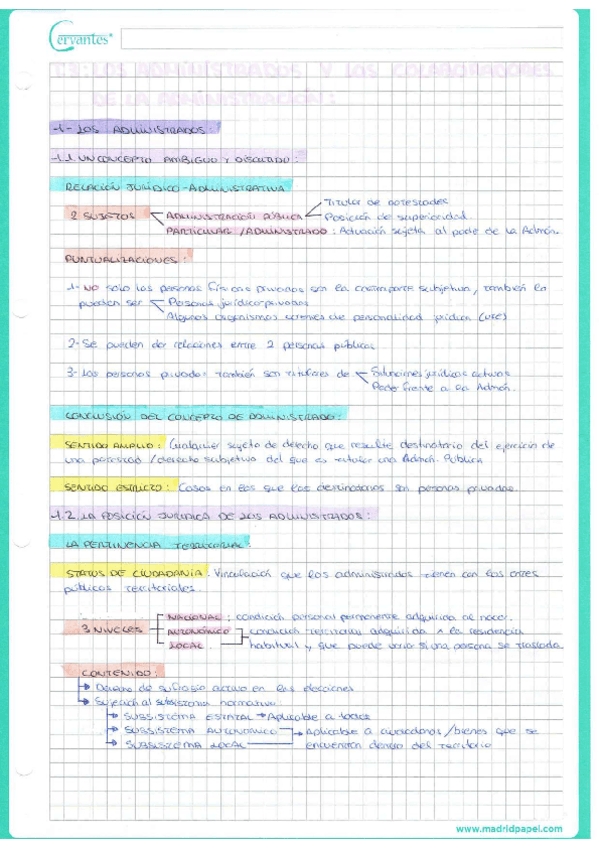 Cervantes®
T.3: LOS ADMINISTRADOS Y LOS COLABORADORES
DE LA ADMINISTRACIÓN:
-1- LOS ADMINISTRADOS:
-1.1. UN CONCEPTO AMBIGUO Y DISCUTIDO:
RELACIÓN JURÍDICO-ADMINISTRATIVA
2 SUJETOS
ADMINISTRACIÓN PÚBLICA
Titular de potestades
Posición de superioridad.
PARTICULAR / ADMINISTRADO: Actuación sujeta al poder de la Admón.
PUNTUALIZACIONES:
1- NO solo las personas físicas privadas son la contraparte subjetiva, también lo
pueden ser
Personas jurídico-privadas
Algunos organismos carentes de personalidad jurídica (UTE)
2- Se pueden dar relaciones entre 2 personas públicas
3- Las personas privadas también son titulares de
Situaciones jurídicas activas
Poder frente a la Admón.
CONCLUSIÓN DEL CONCEPTO DE ADMINISTRADO:
SENTIDO AMPLIO: Cualquier sujeto de derecho que resulte destinatario del ejercicio de
una potestad / derecho subjetivo del que es titular una Admón. Pública
SENTIDO ESTRICTO: Casos en los que los destinatarios son personas privadas
-1.2. LA POSICIÓN JURÍDICA DE LOS ADMINISTRADOS:
LA PERTINENCIA TERRITORIAL:
STATUS DE CIUDADANÍA: Vinculación que los administrados tienen con los entes
públicos territoriales.
3 NIVELES
NACIONAL: condición personal permanente adquirida al nacer.
AUTONÓMICO
LOCAL
condición territorial adquirida x la residencia
habitual y que puede variar si una persona se traslada.
CONTENIDO:
Derecho de sufragio activo en las elecciones
Sujeción al subsistema normativo:
SUBSISTEMA ESTATAL → Aplicable a todos
SUBSISTEMA AUTONÓMICO
SUBSISTEMA LOCAL
Aplicable a ciudadanos / bienes que se
encuentren dentro del territorio
www.madridpapel.com